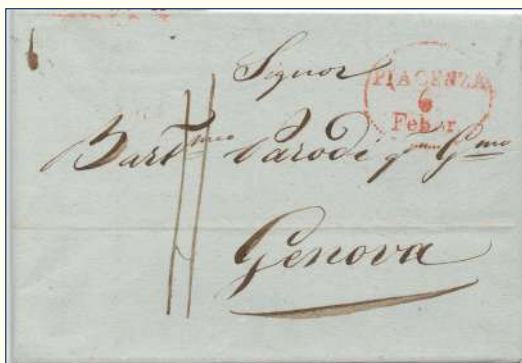 Signor
PIACENZA
6
Febbr
Bart.meo Parodi q.m G.mo
Genova